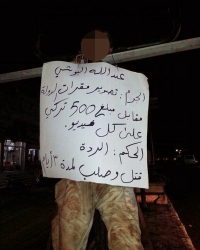 عبدالله البوشي
الجرم: تصوير مقرات الدولة
مقابل مبلغ 500 تركي
على كل فيديو.
الحكم: الردة
قتل وصلب لمدة ٣ أيام